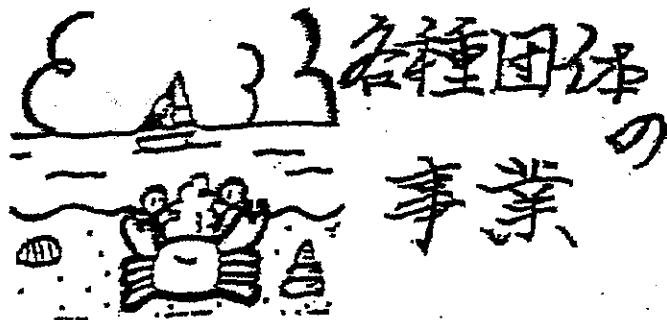 各種団体
の
事業